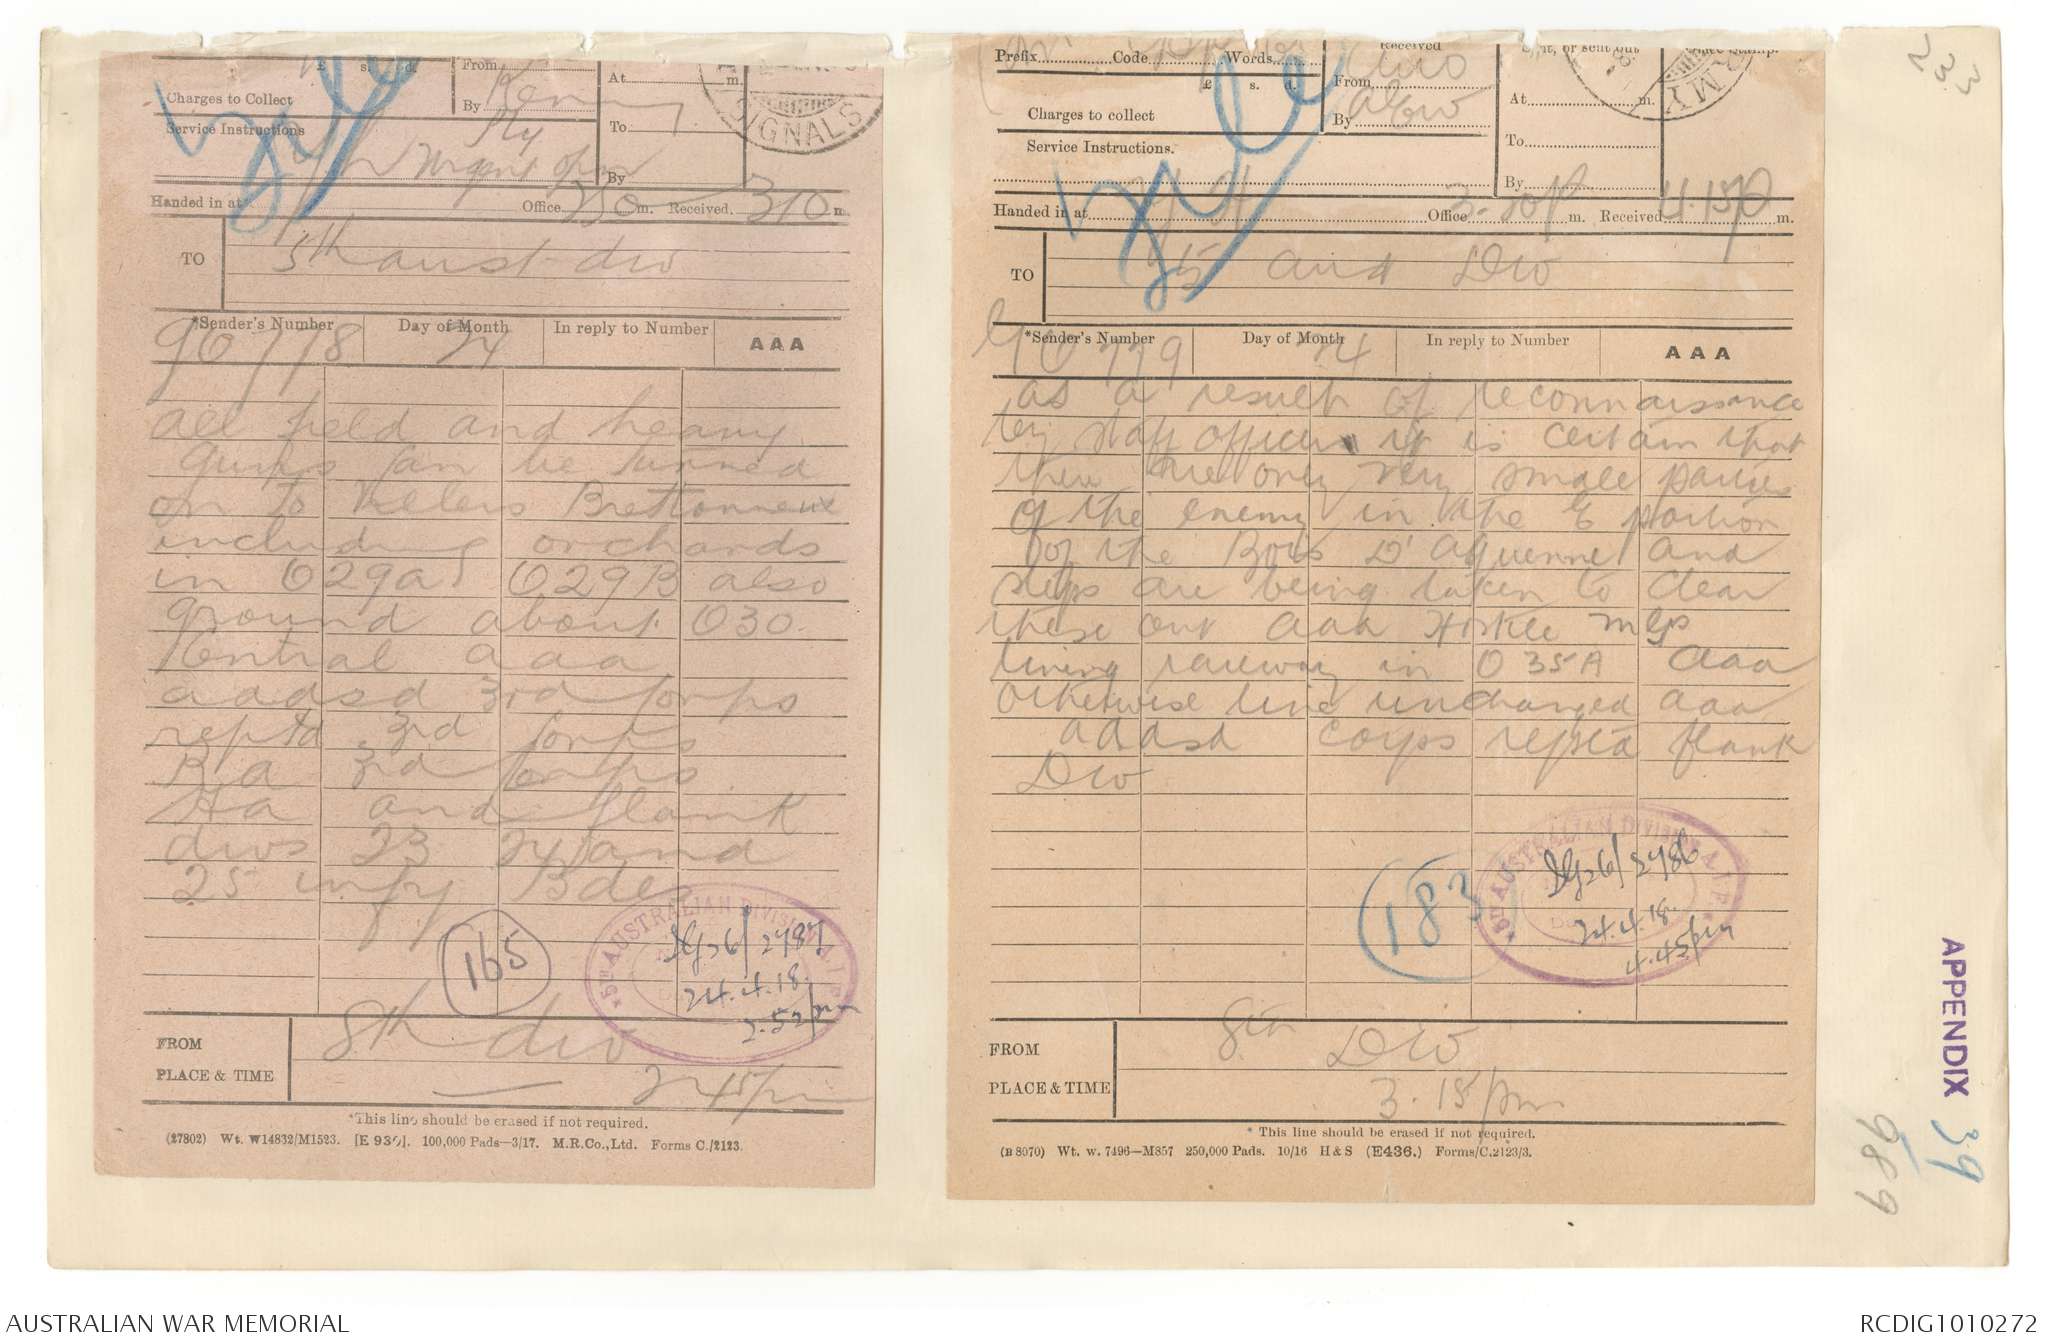 £ s. d.
Charges to Collect
Service Instructions
From
By
Kenny
At m.
To
By
SIGNALS
Urgent Opn
Handed in at Office 230 m. Received 310 m.
TO 5th aust div
*Sender's Number Day of Month In reply to Number AAA
GO778 24
all field and heavy
guns can be turned
on to Villers Brettonneux
including orchards
in O29a O29B also
ground about O30
Central aaa
aadsd 3rd Corps
reptd 3rd Corps
Ra 3rd Corps
Ha and flank
divs 23 24 and
25 infy Bdes
165
5TH AUSTRALIAN DIVISION A.I.F.
24.4.18.
FROM 8th div
PLACE & TIME 2 45 pm
*This line should be erased if not required.
(27802) Wt. W14832/M1523. [E 930]. 100,000 Pads—3/17. M.R.Co., Ltd. Forms C./2123.
Prefix Code Words
£ s. d.
Charges to collect
Service Instructions.
Received
From
By
Sent, or sent out
At m.
To
By
Office Stamp.
ARMY
Handed in at Office m. Received 4.15p m.
TO 5 aus Div
*Sender's Number Day of Month In reply to Number AAA
GO 779 24
as a result of reconnaissance
by staff officers it is certain that
there are only very small parties
of the enemy in the E portion
of the Bois D'aquenne and
steps are being taken to clear
these out aaa Hostile mgs
lining railway in O35A aaa
otherwise line unchanged aaa
addsd corps reptd flank
Div
183
5TH AUSTRALIAN DIVISION A.I.F.
24.4.18.
4.45pm
FROM 8th Div
PLACE & TIME 3.15 pm
* This line should be erased if not required.
(B 8070) Wt. w. 7496—M857 250,000 Pads. 10/16 H & S (E436.) Forms/C.2123/3.
233
APPENDIX 39
989
AUSTRALIAN WAR MEMORIAL
RCDIG1010272